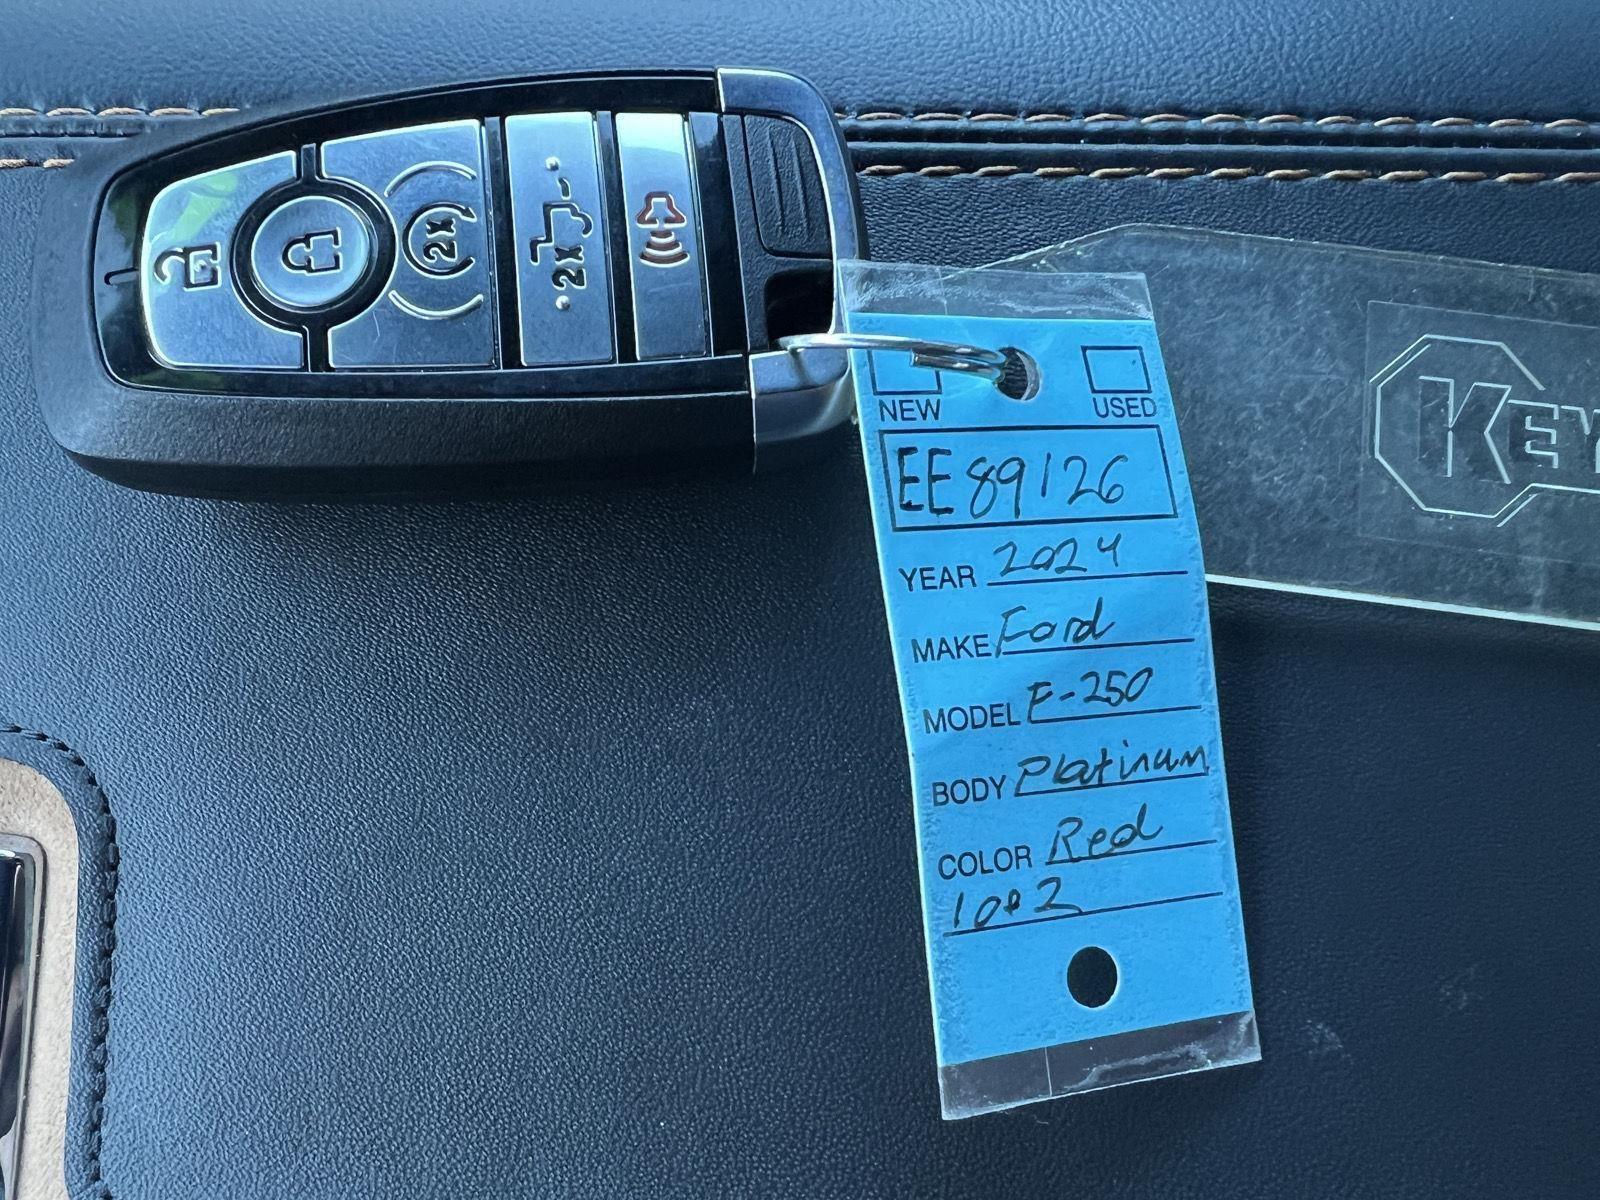 2x
2x
KEY
NEW USED
EE89126
YEAR 2024
MAKE Ford
MODEL F-250
BODY Platinum
COLOR Red
1 of 2